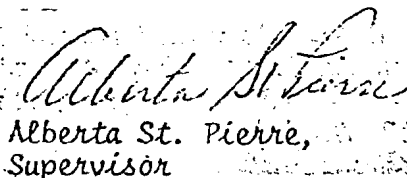 Alberta St. Pierre
Alberta St. Pierre,
Supervisor